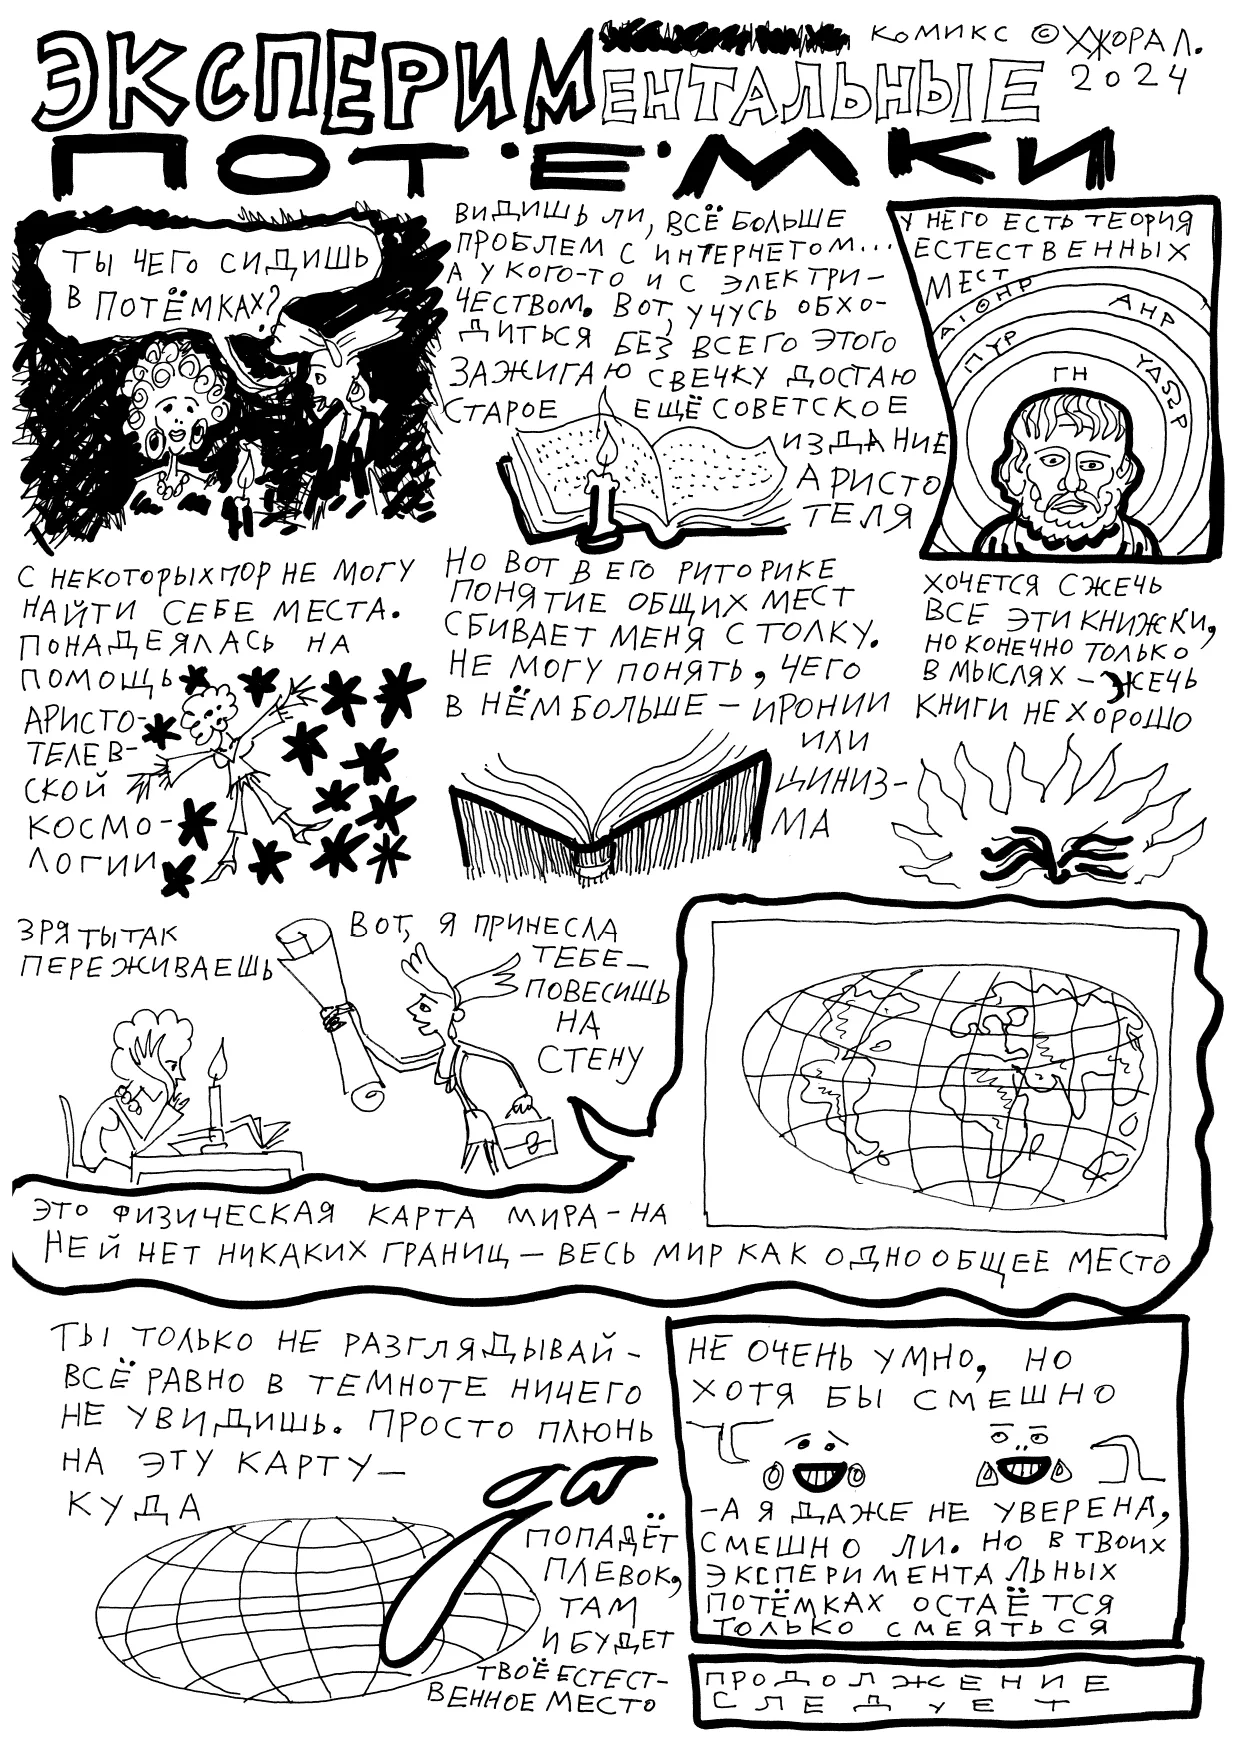 ЭКСПЕРИМЕНТАЛЬНЫЕ
ПОТЁМКИ
КОМИКС © ЖОРА Л.
2024
ТЫ ЧЕГО СИДИШЬ
В ПОТЁМКАХ?
ВИДИШЬ ЛИ, ВСЁ БОЛЬШЕ
ПРОБЛЕМ С ИНТЕРНЕТОМ...
А У КОГО-ТО И С ЭЛЕКТРИ-
ЧЕСТВОМ. ВОТ, УЧУСЬ ОБХО-
ДИТЬСЯ БЕЗ ВСЕГО ЭТОГО
ЗАЖИГАЮ СВЕЧКУ ДОСТАЮ
СТАРОЕ ЕЩЁ СОВЕТСКОЕ
ИЗДАНИЕ
АРИСТО
ТЕЛЯ
У НЕГО ЕСТЬ ТЕОРИЯ
ЕСТЕСТВЕННЫХ
МЕСТ
ΑΙΘΗΡ
ΑΗΡ
ΠΥΡ
ΥΔΩΡ
ΓΗ
С НЕКОТОРЫХ ПОР НЕ МОГУ
НАЙТИ СЕБЕ МЕСТА.
ПОНАДЕЯЛАСЬ НА
ПОМОЩЬ
АРИСТО-
ТЕЛЕВ-
СКОЙ
КОСМО-
ЛОГИИ
НО ВОТ В ЕГО РИТОРИКЕ
ПОНЯТИЕ ОБЩИХ МЕСТ
СБИВАЕТ МЕНЯ С ТОЛКУ.
НЕ МОГУ ПОНЯТЬ, ЧЕГО
В НЁМ БОЛЬШЕ – ИРОНИИ
ИЛИ
ЦИНИЗ-
МА
ХОЧЕТСЯ СЖЕЧЬ
ВСЕ ЭТИ КНИЖКИ,
НО КОНЕЧНО ТОЛЬКО
В МЫСЛЯХ – ЖЕЧЬ
КНИГИ НЕХОРОШО
ЗРЯ ТЫ ТАК
ПЕРЕЖИВАЕШЬ
ВОТ, Я ПРИНЕСЛА
ТЕБЕ –
ПОВЕСИШЬ
НА
СТЕНУ
ЭТО ФИЗИЧЕСКАЯ КАРТА МИРА – НА
НЕЙ НЕТ НИКАКИХ ГРАНИЦ – ВЕСЬ МИР КАК ОДНО ОБЩЕЕ МЕСТО
ТЫ ТОЛЬКО НЕ РАЗГЛЯДЫВАЙ –
ВСЁ РАВНО В ТЕМНОТЕ НИЧЕГО
НЕ УВИДИШЬ. ПРОСТО ПЛЮНЬ
НА ЭТУ КАРТУ –
КУДА
ПОПАДЁТ
ПЛЕВОК,
ТАМ
И БУДЕТ
ТВОЁ ЕСТЕСТ-
ВЕННОЕ МЕСТО
НЕ ОЧЕНЬ УМНО, НО
ХОТЯ БЫ СМЕШНО
– А Я ДАЖЕ НЕ УВЕРЕНА,
СМЕШНО ЛИ. НО В ТВОИХ
ЭКСПЕРИМЕНТАЛЬНЫХ
ПОТЁМКАХ ОСТАЁТСЯ
ТОЛЬКО СМЕЯТЬСЯ
ПРОДОЛЖЕНИЕ
СЛЕДУЕТ